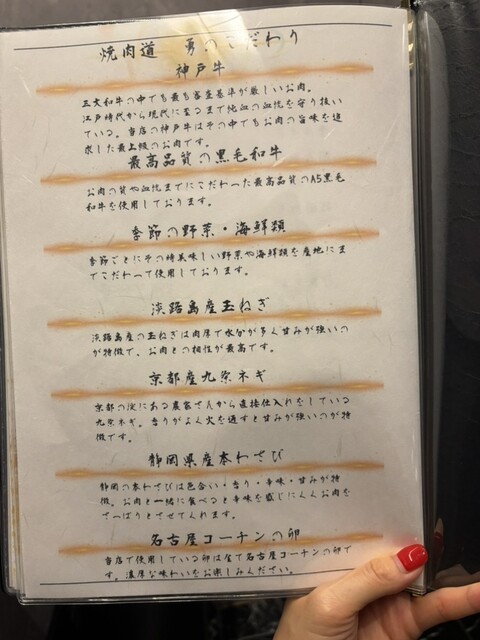 焼肉道 勇のこだわり
神戸牛
三大和牛の中でも最も審査基準が厳しいお肉。
江戸時代から現代に至るまで純血の血統を守り抜い
ている。当店の神戸牛はその中でもお肉の旨味を追
求した最上級のお肉です。
最高品質の黒毛和牛
お肉の質や血統までにこだわった最高品質のA5黒毛
和牛を使用しております。
季節の野菜・海鮮類
季節ごとにその時美味しい野菜や海鮮類を産地にま
でこだわって使用しております。
淡路島産玉ねぎ
淡路島産の玉ねぎは肉厚で水分が多く甘みが強いの
が特徴で、お肉との相性が最高です。
京都産九条ネギ
京都の淀にある農家さんから直接仕入れをしている
九条ネギ。香りがよく火を通すと甘みが強いのが特
徴です。
静岡県産本わさび
静岡の本わさびは色合い・香り・辛味・甘みが特
徴。お肉と一緒に食べると辛味を感じにくくお肉を
さっぱりとさせてくれます。
名古屋コーチンの卵
当店で使用している卵は全て名古屋コーチンの卵で
す。濃厚な味わいをお楽しみください。